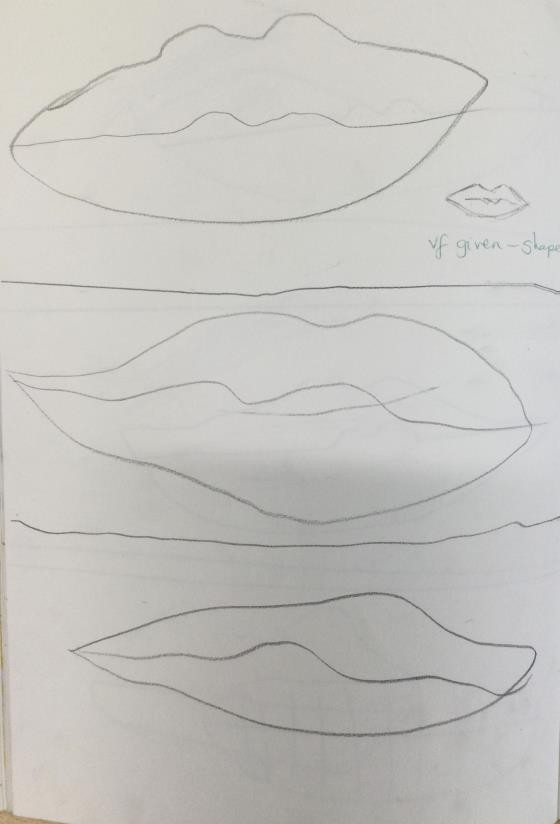 vf given - shape